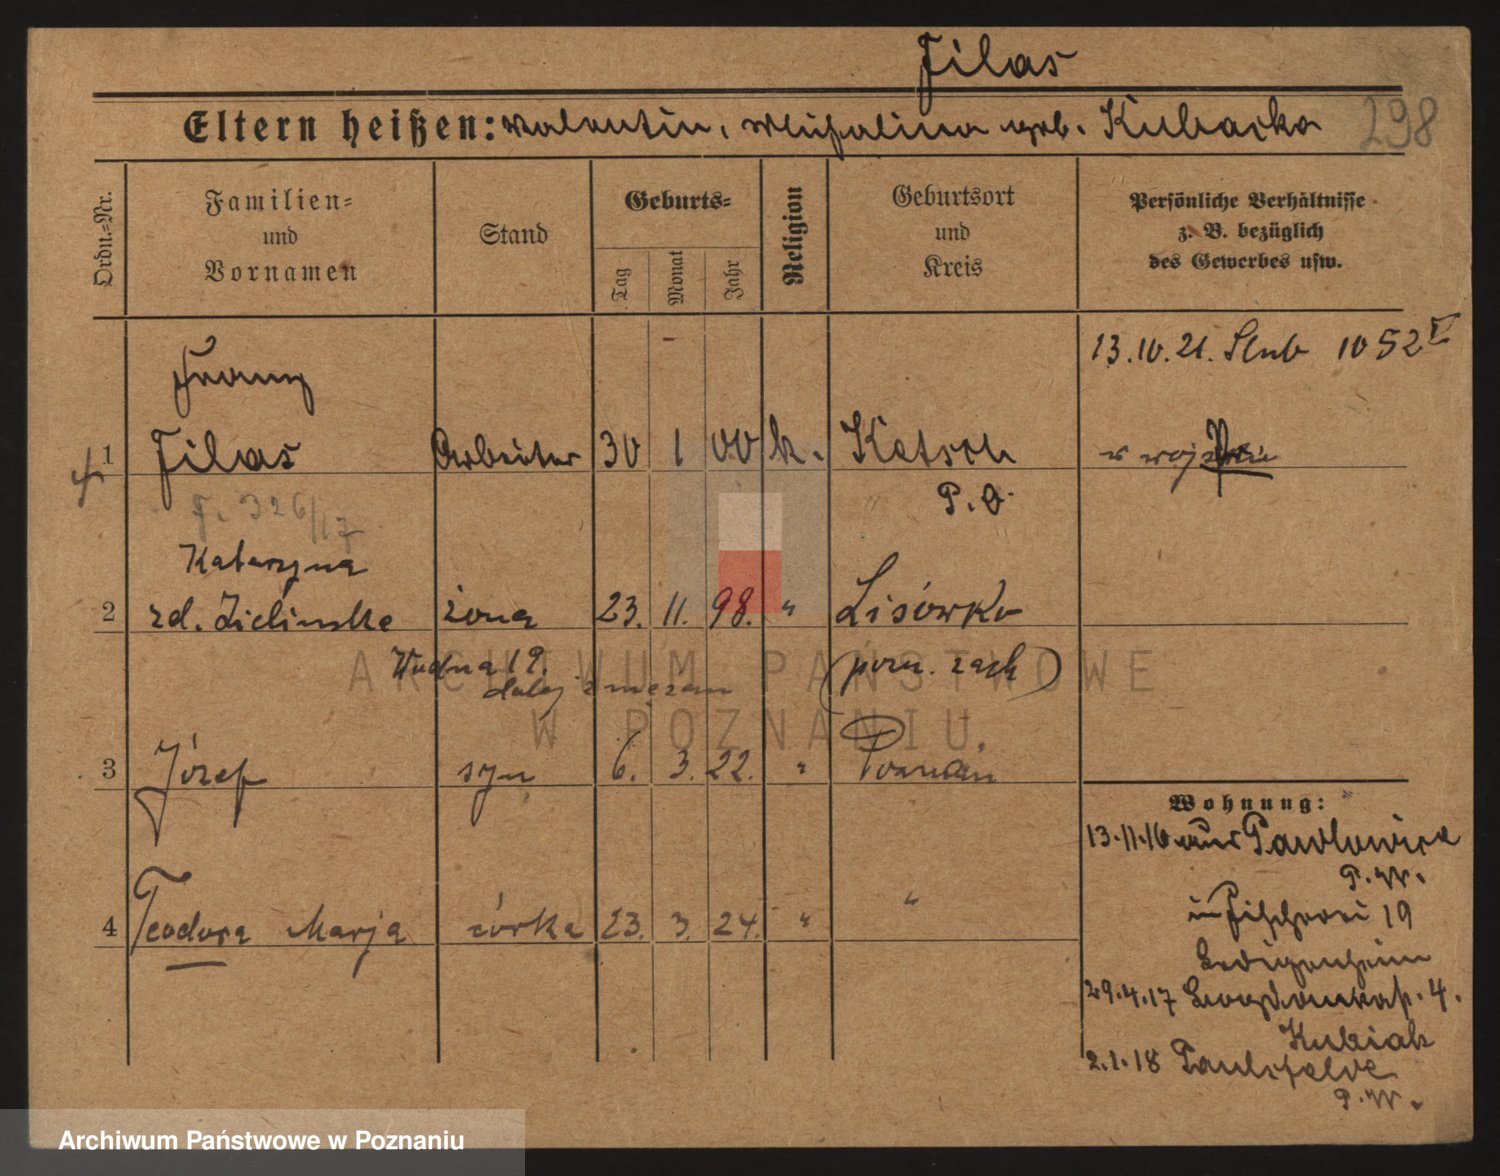 Filas
Eltern heißen: Valentin, Michalina geb. Kubacka
298
Ordn.=Nr.
Familien=
und
Vornamen
Stand
Geburts=
Tag
Monat
Jahr
Religion
Geburtsort
und
Kreis
Persönliche Verhältnisse
z. B. bezüglich
des Gewerbes usw.
13.10.21. Slub 1052 V
Franz
1 Filas Arbeiter 30 1 00 k. Ketsch
w
P. O.
F. 326/17
Katarzyna
2 zd. Zielinska żona 23. 11. 98. " Lisówko
Wodna 19.
(pozn. zach)
dalej z mężem
3 Józef syn 6. 3. 22. " Poznan
4 Teodora Marja córka 23. 3. 24. " "
Wohnung:
13.11.16 aus Pawlowice
P. W.
in Fischerei 19
Ledigenheim
29.4.17 4.
Kubiak
2.1.18 Paulsfelde
P. W.
ARCHIWUM PAŃSTWOWE
W POZNANIU
Archiwum Państwowe w Poznaniu